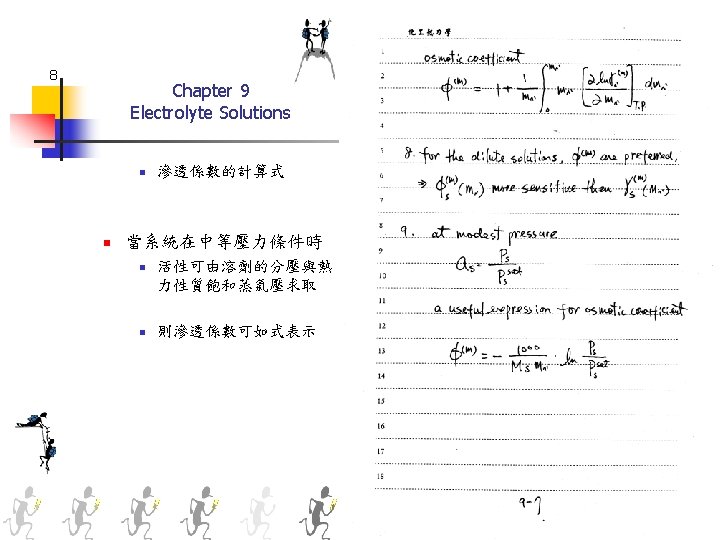 8
Chapter 9
Electrolyte Solutions
滲透係數的計算式
當系統在中等壓力條件時
活性可由溶劑的分壓與熱
力性質飽和蒸氣壓求取
則滲透係數可如式表示
化工熱力學
1
osmotic coefficient
2
ϕ^(m) = 1 + 1/m_n ∫_0^{m_n} m_n [∂ ln γ_n^(m) / ∂ m_n]_{T.P.} dm_n
3
4
5
8. for the dilute solutions, ϕ^(m) are preferred,
6
⇒ ϕ_s^(m) (m_n) more sensitive then γ_s^(m) (m_n)
7
8
9. at modest pressure
9
a_s = P_s / P_s^sat
10
11
a useful expression for osmotic coefficient
12
13
ϕ^(m) = − 1000 / M_s m_n · ln P_s / P_s^sat
14
15
16
17
18
9-7